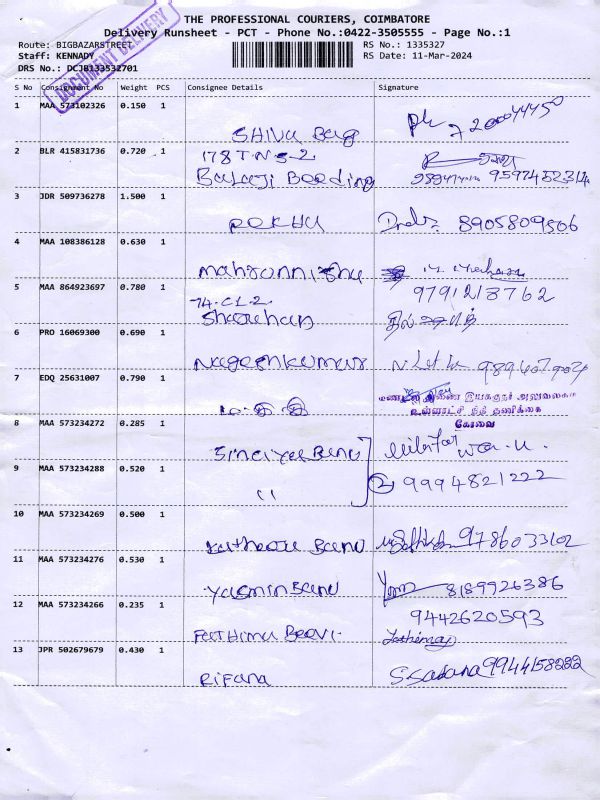 THE PROFESSIONAL COURIERS, COIMBATORE
Delivery Runsheet - PCT - Phone No.:0422-3505555 - Page No.:1
Route: BIGBAZARSTREET
RS No.: 1335327
Staff: KENNADY
RS Date: 11-Mar-2024
DRS No.: DCJB133532701
DOCUMENT DELIVERY
S No Consignment No Weight PCS Consignee Details Signature
1 MAA 573102326 0.150 1
SHIVU Bag
2 BLR 415831736 0.720 1 178 T.N.S-2
BaLaJi Bedding 9597452314
3 JDR 509736278 1.500 1
REKHU 8905809506
4 MAA 108386128 0.630 1
5 MAA 864923697 0.780 1 74-CL-2 9791218762
6 PRO 16069300 0.690 1
Nageshkumar
7 EDQ 25631007 0.790 1
உள்ளாட்சி நிதி தணிக்கை
கோவை
8 MAA 573234272 0.285 1
Banu
9 MAA 573234288 0.520 1
" 9994821222
10 MAA 573234269 0.500 1
Banu 9786033102
11 MAA 573234276 0.530 1
Yasmin Banu 8189926386
12 MAA 573234266 0.235 1 9442620593
Fathima Beevi.
13 JPR 502679679 0.430 1
Rifana S.Sadana 9944158282